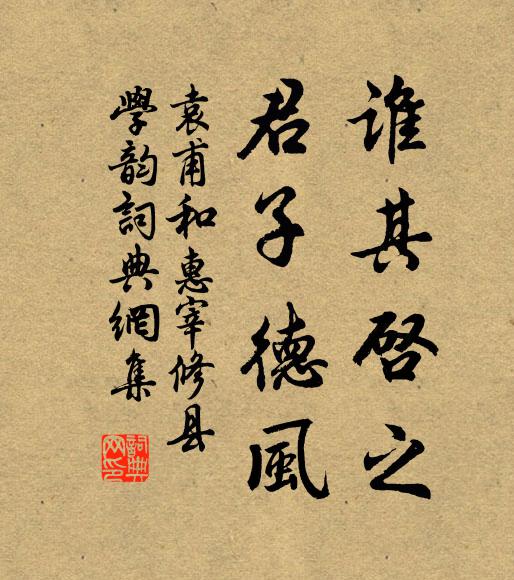 誰其啓之
君子德風
袁甫和惠宰修县
學韵詞典網集
詞典網印